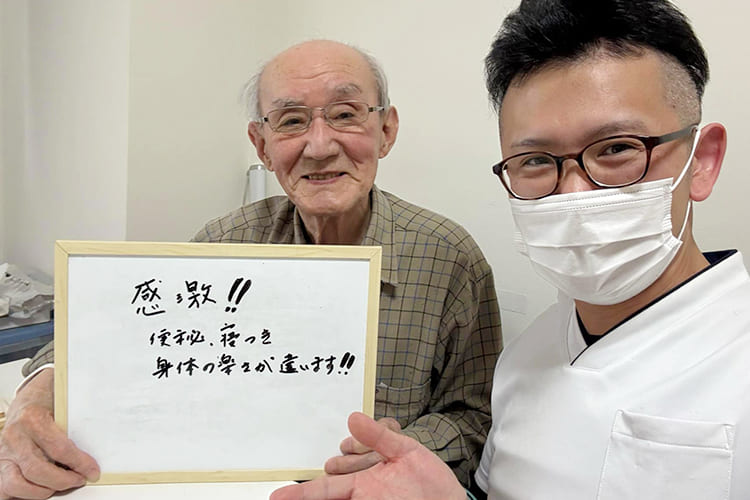 感激!!
便秘、寝つき
身体の楽さが違います!!